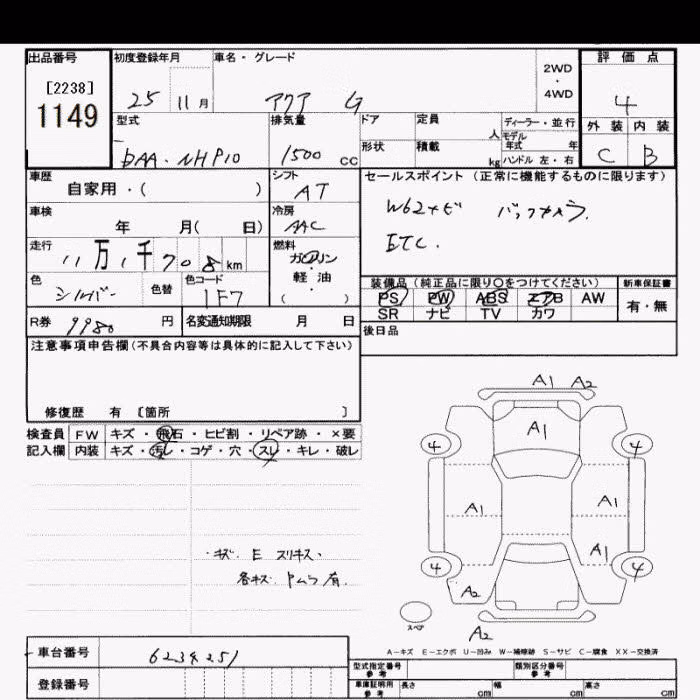 出品番号 初度登録年月 車名・グレード 2WD・4WD 評価点
[2238]
1149
25 11月 アクア G 4
型式 排気量 ドア 定員 人 ディーラー・並行 外装 内装
モデル年式 年
DAA・NHP10 1500 cc 形状 積載 kg ハンドル 左・右 C B
車歴 シフト セールスポイント (正常に機能するものに限ります)
自家用・( ) AT
車検 冷房
年 月( 日) AAC バックカメラ.
ETC.
走行 燃料
11万1千708km ガソリン・軽油
( )
色 シルバー 色替 色コード 1F7
装備品(純正品に限り○をつけてください) 新車保証書
PS PW ABS エアB AW 有・無
SR ナビ TV カワ
R券 9980 円 名変通知期限 月 日
後日品
注意事項申告欄(不具合内容等は具体的に記入して下さい)
修復歴 有 〔箇所 〕
検査員 FW キズ・飛石・ヒビ割・リペア跡・×要
記入欄 内装 キズ・汚レ・コゲ・穴・スレ・キレ・破レ
A1 A2
A1
4 4
A1 A1
A1
4 4
A2
スペア
A2
・キズ. E スリキズ.
各キズ. 有.
A-キズ E-エクボ U-凹み W-補修跡 S-サビ C-腐食 XX-交換済
車台番号 6234251
登録番号
型式指定番号 参考 類別区分番号 参考
車庫証明用 参考 長さ cm 幅 cm 高さ cm